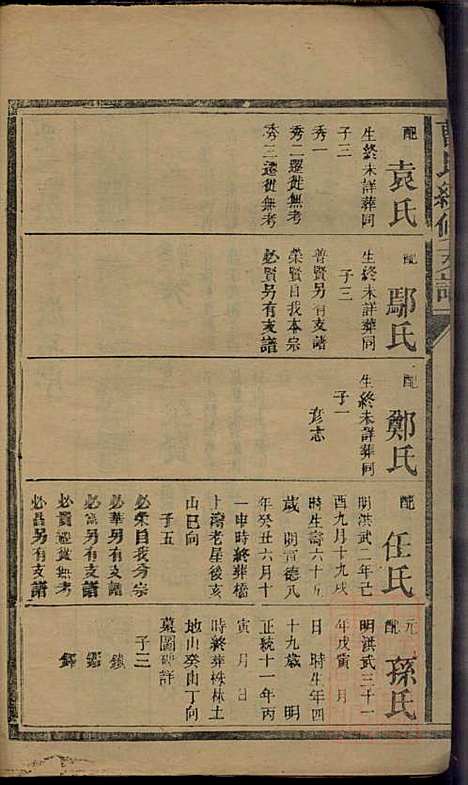 配袁氏
生終未詳葬同
子三
秀一
秀二遷徙無考
秀三遷徙無考
配鄢氏
生終未詳葬同
子三
普賢另有支譜
榮賢自我本宗
必賢另有支譜
配鄭氏
生終未詳葬同
子一
彦志
配任氏
明洪武二年己
酉九月十九戌
時生壽六十五
歲明宣德八
年癸丑六月十
一申時終葬橋
上灣老星後亥
山巳向
子五
必榮自我分宗
必華另有支譜
必富另有支譜
必賢遷徙無考
必昌另有支譜
元配孫氏
明洪武三十一
年戊寅 月
日 時生年四
十九歲 明
正統十一年丙
寅 月 日
時終葬株林土
地山癸山丁向
墓圖碑詳
子三